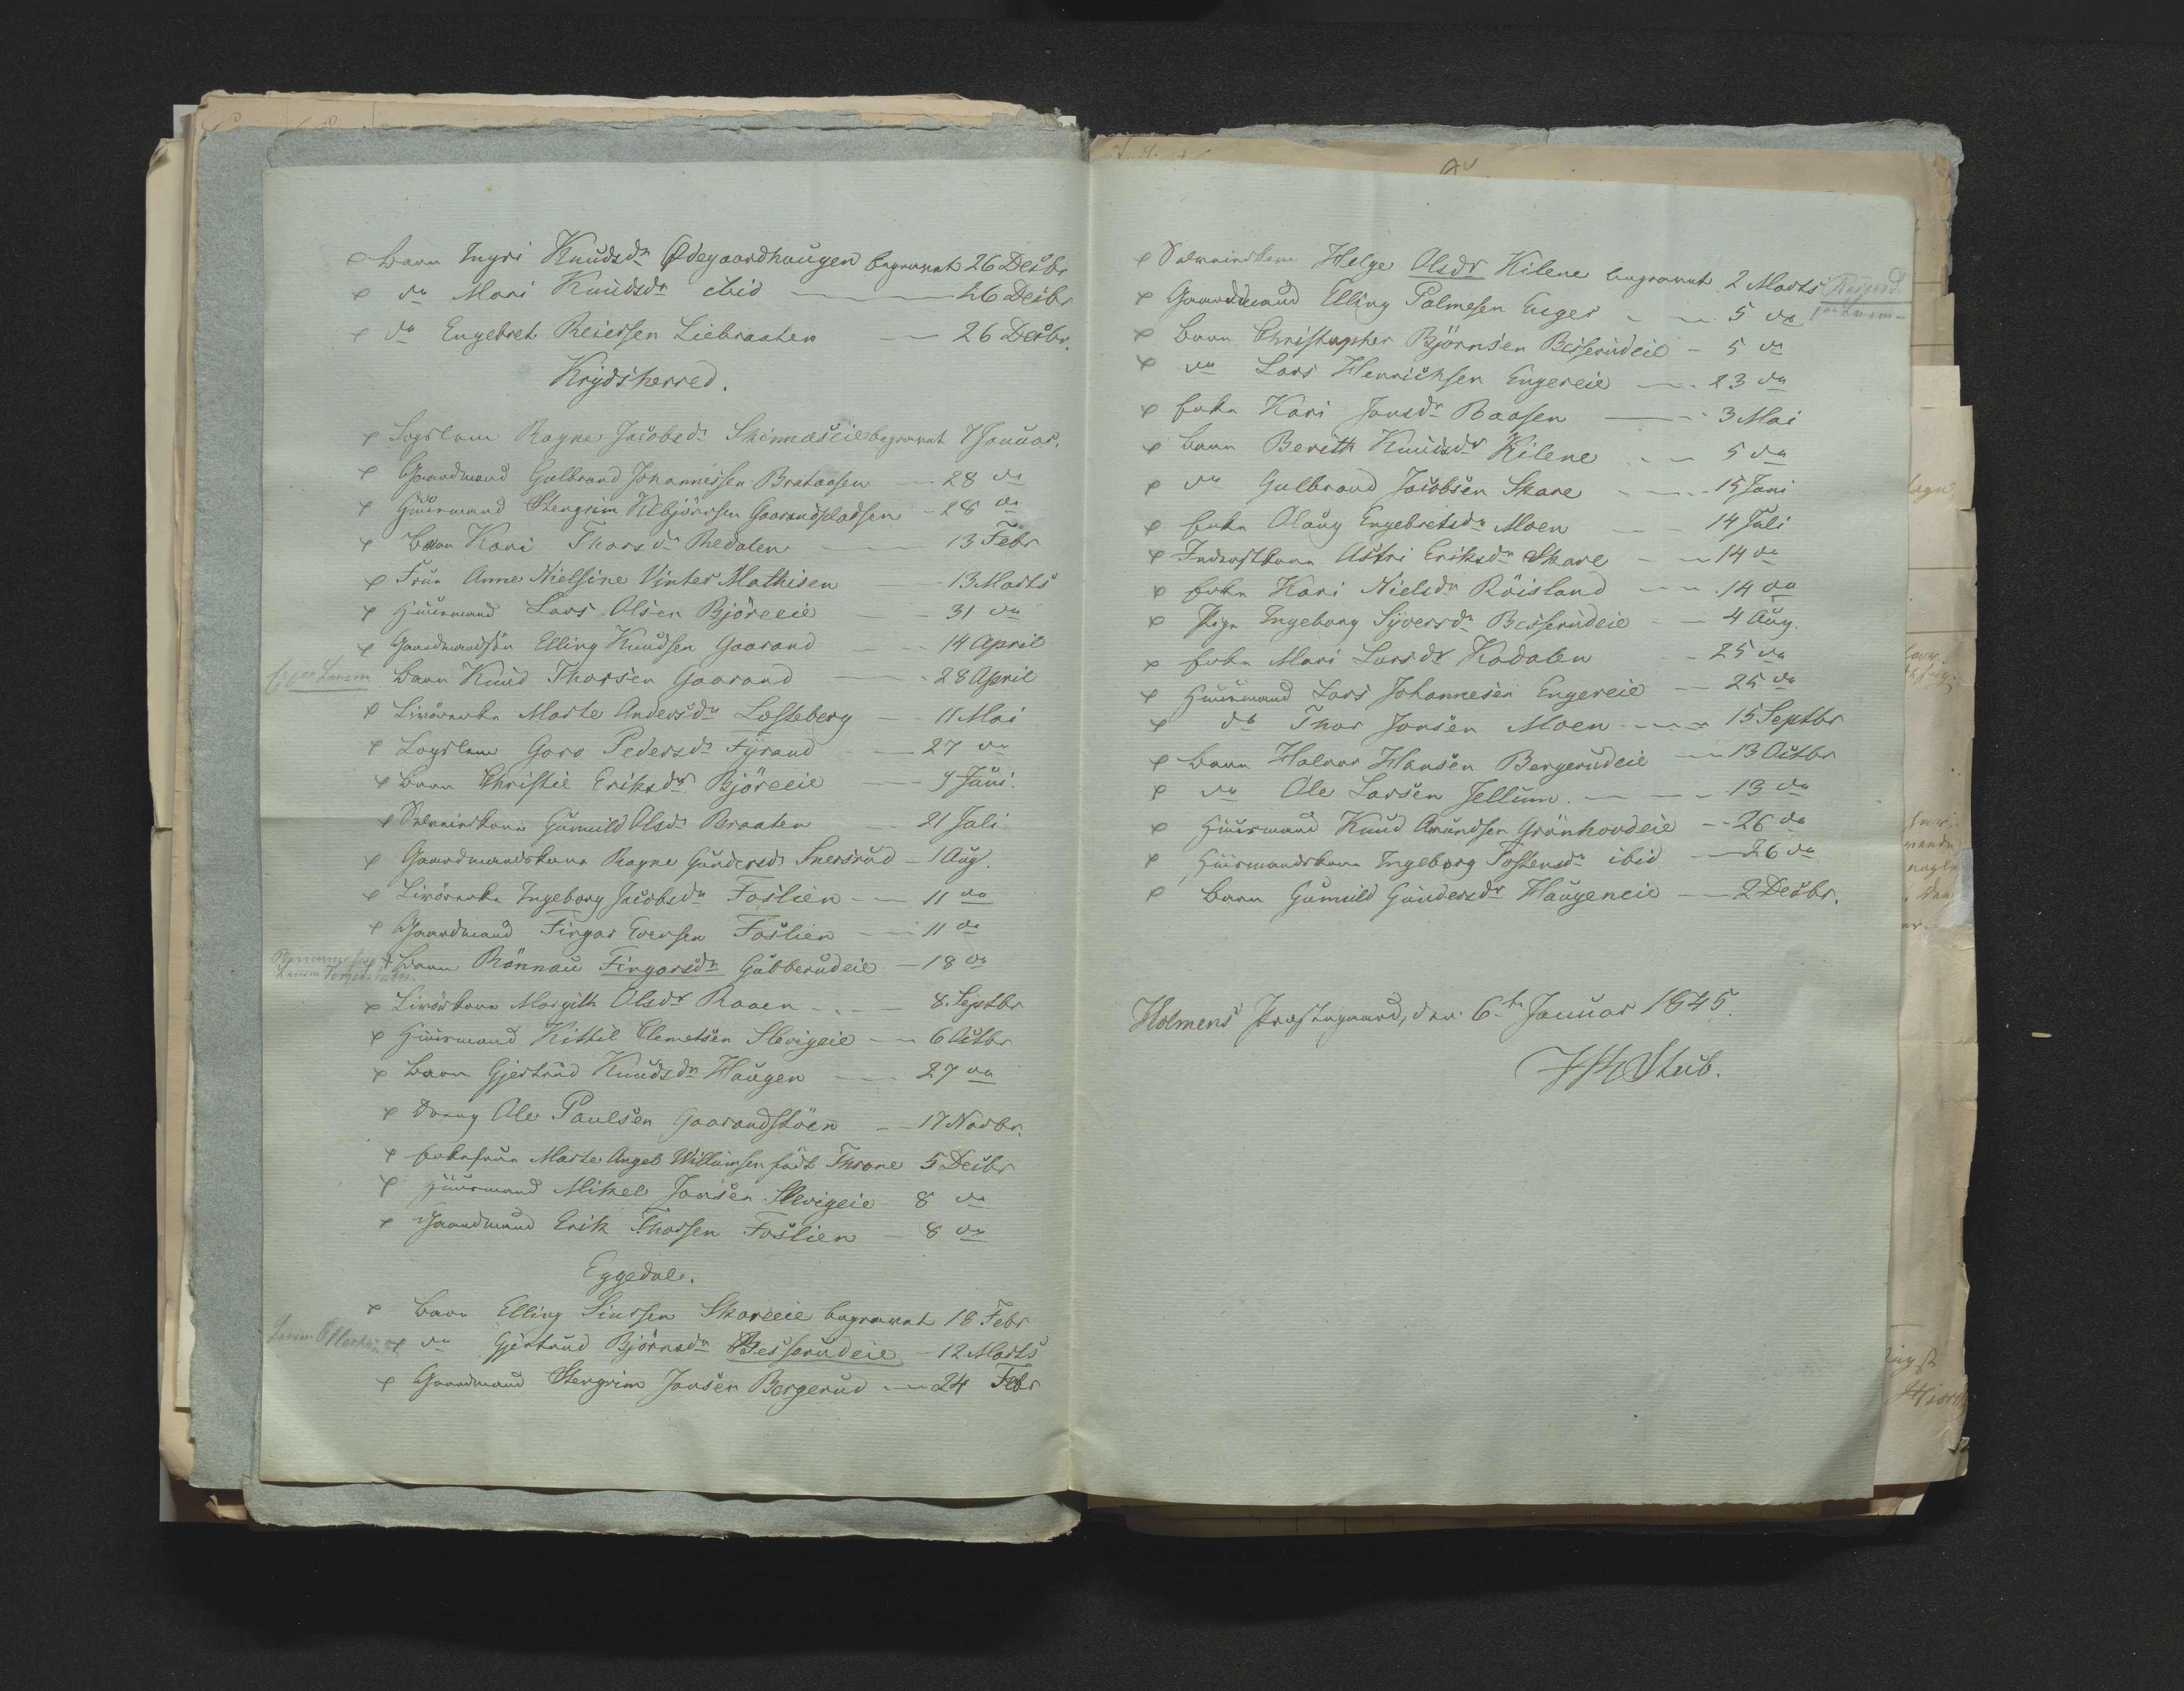 Barn Ingri Knudsdr Ødegaardhaugen begravet 26 Decbr
do Mari Knudsdr ibid 26 Decbr
do Engebret Reiersen Liebraaten 26 Decbr.
Krydsherred.
Lægslem Ragne Jacobsdr begravet 7 Januar.
Gaardmand Gulbrand Johannessen Brataasen 28 do
Huusmand Stengrim Kebjörnsen Gaarandpladsen 28 do
Barn Kari Thorsdr Redalen 13 Febr
Frue Anne Nielsine Vinter Mathisen 13 Marts
Huusmand Lars Olsen Björeeie 31 do
Gaardmandsön Elling Knudsen Gaarand 14 April
Barn Knud Thorsen Gaarand 28 April
Livörenke Marte Andersdr Lesteberg 11 Mai
Lægslem Goro Pedersdr Fyrand 27 do
Barn Christie Eriksdr Björeeie 9 Juni.
Selveierkone Gunnild Olsdr Braaten 21 Juli
Gaardmandskone Ragne Gundersdr Snersrud 1 Aug.
Livörenke Ingeborg Jacobsdr Foslien 11 do
Gaardmand Fingar Evensen Foslien 11 do
Barn Rönnau Fingarsdr Gubberudeie 18 do
Livörkone Margith Olsdr Raaen 8. Septbr
Huusmand Kittil Clemetsen Slevigeie 6 Octbr
Barn Gjertrud Knudsdr Haugen 27 do
Dreng Ole Paulsen Gaarandstöen 17 Novbr.
Enkefrue Marte Angel Willumsen födt Throne 5 Decbr
Huusmand Mikel Jonsen Slevigeie 8 do
Gaardmand Erik Thorsen Foslien 8 do
Eggedal.
Barn Elling Siursen Skareeie begravet 18 Febr
do Gjertrud Björnsdr Besserudeie 12 Marts
Gaardmand Stengrim Jonsen Borgerud 24 Febr
Selveierkone Helge Olsdr Kilene begravet 2 Marts
Gaardmand Elling Palmesen Enger 5 do
Barn Christopher Björnsen Besserudeie 5 do
do Lars Henrichsen Engereie 23 do
Enke Kari Jonsdr Raasen 3 Mai
Barn Berith Knudsdr Kilene 5 do
do Gulbrand Jacobsen Skare 15 Juni
Enke Olaug Engebretsdr Moen 14 Juli
Inderstkone Astri Eriksdr Skare 14 do
Enke Kari Nielsdr Röisland 14 do
Pige Ingeborg Syversdr Besserudeie 4 Aug.
Enke Mari Larsdr Kadalen 25 do
Huusmand Lars Johannesen Engereie 25 do
do Thor Jonsen Moen 15 Septbr
Barn Halvor Hansen Bergerudeie 13 Octbr
do Ole Larsen Jellum. 13 do
Huusmand Knud Amundsen Grönhovdeie 26 do
Huusmandskone Ingeborg Tostensdr ibid 26 do
Barn Gunnild Gundersdr Haugeneie 2 Decbr.
Holmens Præstegaard, den 6te Januar 1845.
Stub.